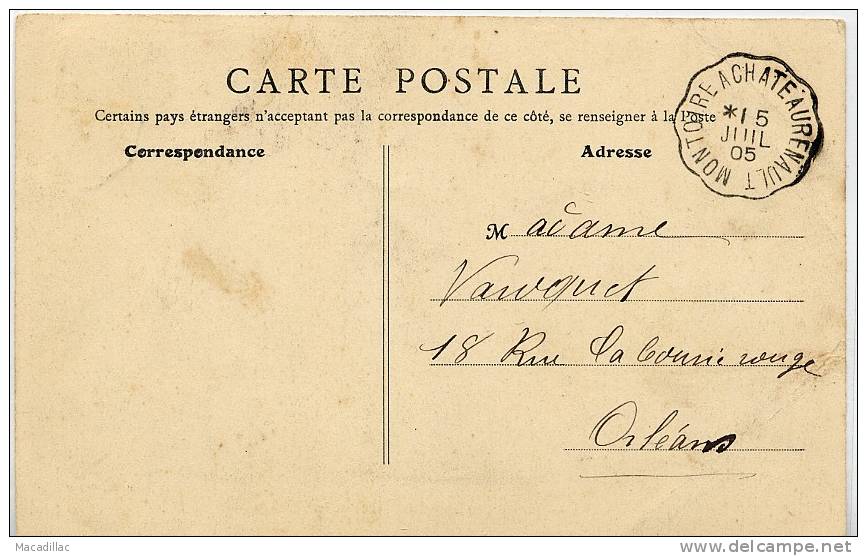 CARTE POSTALE
Certains pays étrangers n'acceptant pas la correspondance de ce côté, se renseigner à la Poste
MONTOIRE A CHATEAURENAULT
*15
JUIL
05
Correspondance
Adresse
Madame
18 Rue rouge
Orléans
Macadillac
delcampe.net